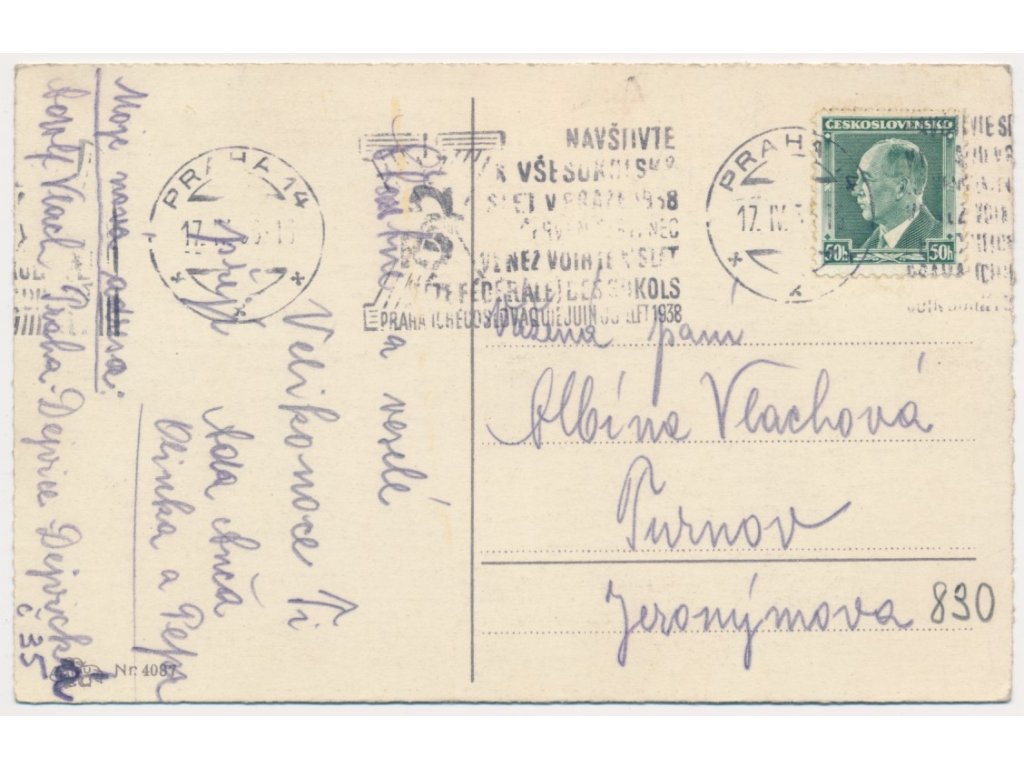 Moje nová adresa:
Adolf Vlach Praha-Dejvice Dejvická
č 35
Šťastné a veselé
Velikonoce Ti
přejí
Ada Anča
Olinka a Pepa
Nr. 4087
PRAHA 14
17.
NAVŠTIVTE
X VŠESOKOLSKÝ
SLET V PRAZE 1938
VENEZ VOIR LE X SLET
FÉDÉRAL DES SOKOLS
PRAHA TCHECOSLOVAQUIE JUIN JUILLET 1938
PRAHA
17. IV.
ČESKOSLOVENSKO
50h 50h
Vážená paní
Albína Vlachová
Turnov
Jeronýmova 830